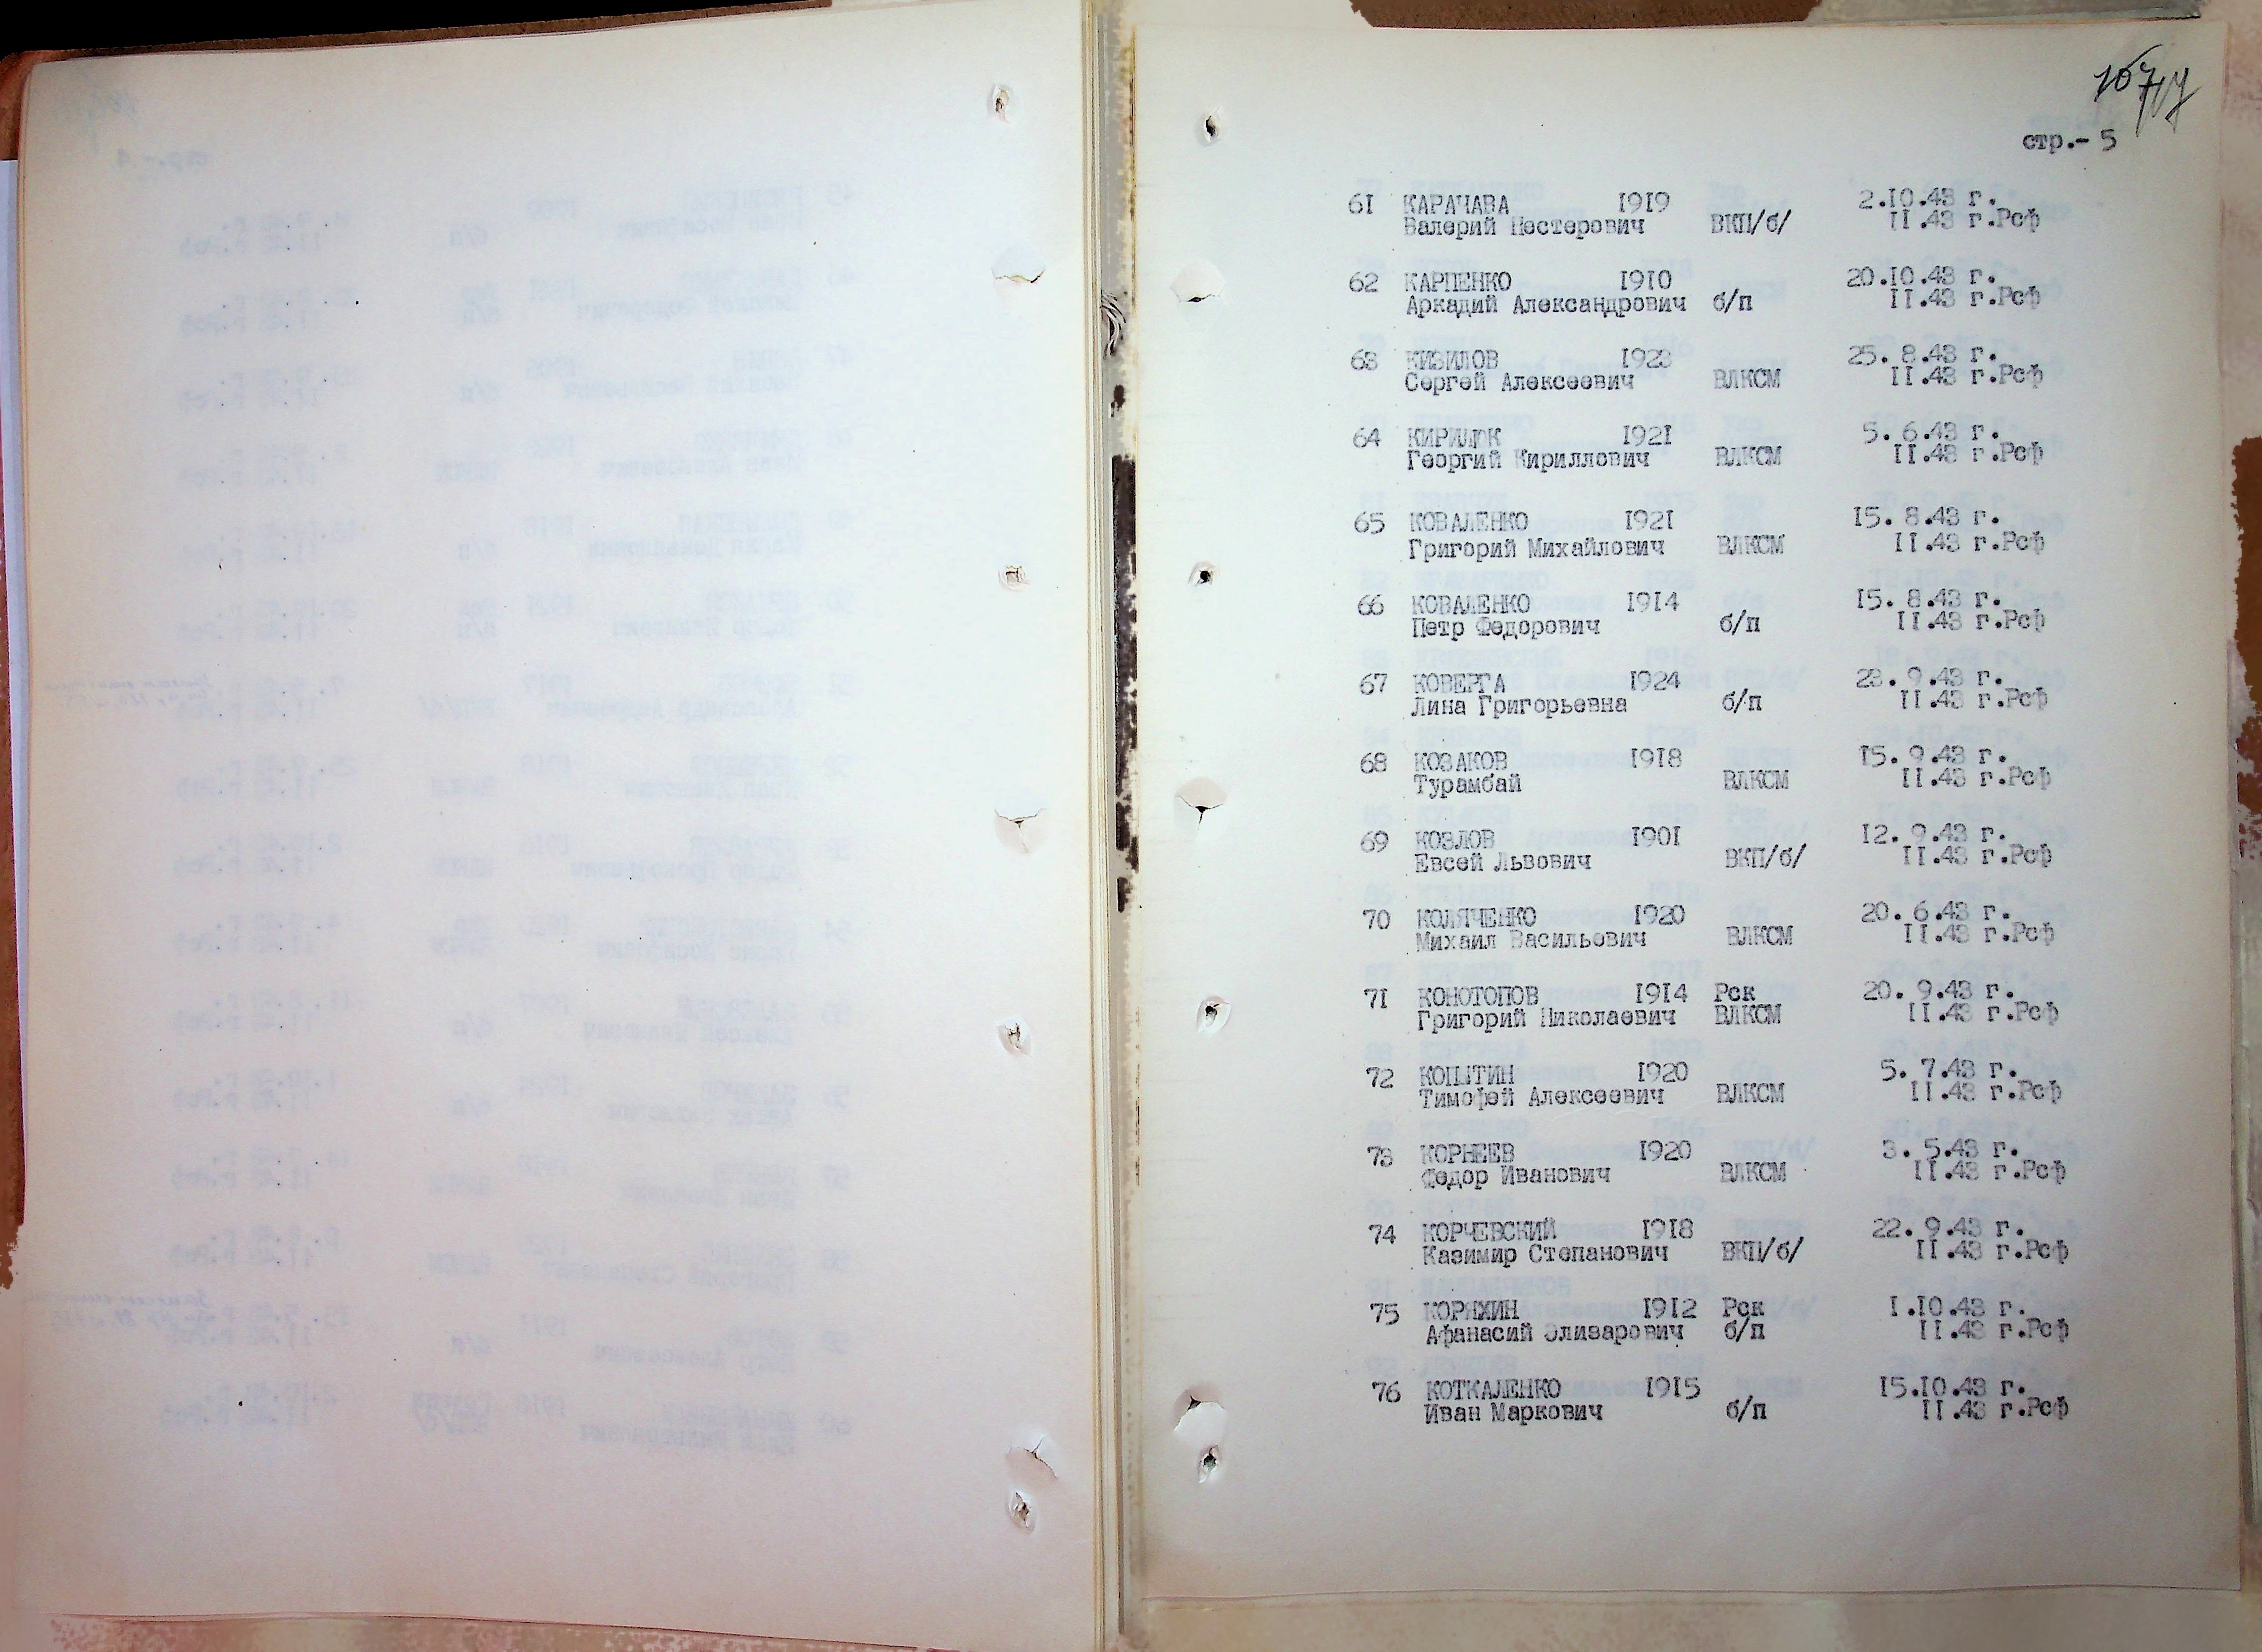 стр.- 5
61 КАРАЧАВА 1919 2.10.43 г.
Валерий Нестерович ВКП/б/ 11.43 г.Рсф
62 КАРПЕНКО 1910 20.10.43 г.
Аркадий Александрович б/п 11.43 г.Рсф
63 КИЗИЛОВ 1923 25. 8.43 г.
Сергей Алексеевич ВЛКСМ 11.43 г.Рсф
64 КИРИЛЮК 1921 5. 6.43 г.
Георгий Кириллович ВЛКСМ 11.43 г.Рсф
65 КОВАЛЕНКО 1921 15. 8.43 г.
Григорий Михайлович ВЛКСМ 11.43 г.Рсф
66 КОВАЛЕНКО 1914 15. 8.43 г.
Петр Федорович б/п 11.43 г.Рсф
67 КОВЕРГА 1924 23. 9.43 г.
Лина Григорьевна б/п 11.43 г.Рсф
68 КОЗАКОВ 1918 15. 9.43 г.
Турамбай ВЛКСМ 11.43 г.Рсф
69 КОЗЛОВ 1901 12. 9.43 г.
Евсей Львович ВКП/б/ 11.43 г.Рсф
70 КОЛЯЧЕНКО 1920 20. 6.43 г.
Михаил Васильевич ВЛКСМ 11.43 г.Рсф
71 КОНОТОПОВ 1914 Рск 20. 9.43 г.
Григорий Николаевич ВЛКСМ 11.43 г.Рсф
72 КОПЫТИН 1920 5. 7.43 г.
Тимофей Алексеевич ВЛКСМ 11.43 г.Рсф
73 КОРНЕЕВ 1920 3. 5.43 г.
Федор Иванович ВЛКСМ 11.43 г.Рсф
74 КОРЧЕВСКИЙ 1918 22. 9.43 г.
Казимир Степанович ВКП/б/ 11.43 г.Рсф
75 КОРЯКИН 1912 Рск 1.10.43 г.
Афанасий Элизарович б/п 11.43 г.Рсф
76 КОТКАЛЕНКО 1915 15.10.43 г.
Иван Маркович б/п 11.43 г.Рсф